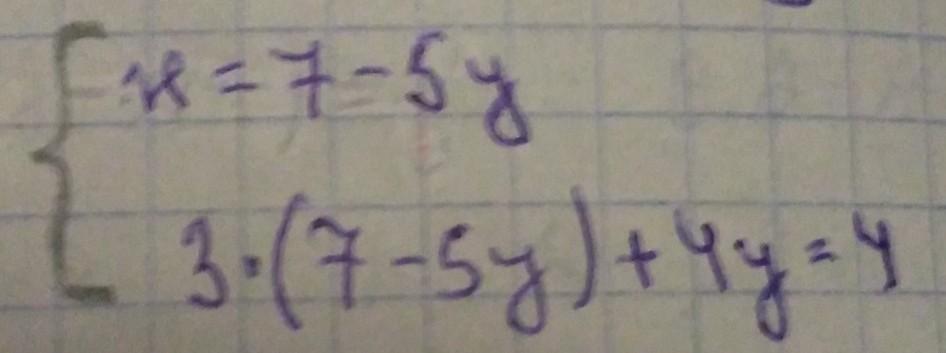 x = 7 - 5y
3·(7 - 5y) + 4y = 4